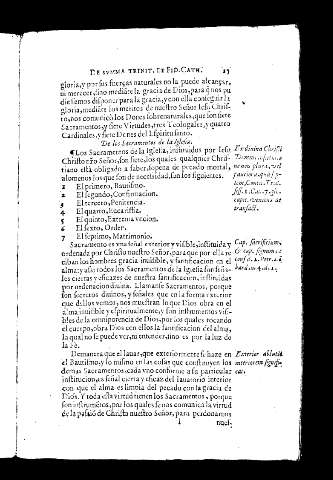 DE SVMMA TRINIT. ET FID. CATH. 23
gloria, y por sus fuerças naturales no la puede alcançar,
ni merecer, sino mediãte la gracia de Dios, para q̃ nos pu
diessemos disponer para la gracia, y con ella conseguir la
gloria, mediãte los meritos de nuestro Señor Iesu Chris-
to, nos comunicó los Dones sobrenaturales, que son siete
Sacramentos, y siete Virtudes, tres Teologales, y quatro
Cardinales, y siete Dones del Espiritu santo.
De los Sacramentos de la Iglesia.
¶Los Sacramentos de la Iglesia, instituidos por Iesu
Christo ñro Señor, son siete, los quales qualquier Chris-
tiano está obligado a saber, so pena de pecado mortal,
alomenos los que son de necessidad, son los siguientes.
1 El primero, Bautismo.
2 El segundo, Confirmacion.
3 El tercero, Penitencia.
4 El quarto, Eucaristia.
5 El quinto, Extrema vncion.
6 El sexto, Orden.
7 El septimo, Matrimonio.
Sacramento es vna señal exterior y visible, instituida y
ordenada por Christo nuestro Señor, para que por ella re
ciban los hombres gracia inuisible, y santificacion en el
alma: y assi todos los Sacramentos de la Iglesia son seña-
les ciertas y eficazes de nuestra santificacion, instituidas
por ordenacion diuina. Llamanse Sacramentos, porque
son secretos diuinos, y señales, que en la forma exterior
que dellos vemos, nos muestran lo que Dios obra en el
alma inuisible y espiritualmente, y son instrumentos visi-
bles de la omnipotencia de Dios, por los quales tocando
el cuerpo, obra Dios con ellos la santificacion del alma,
la qual no se puede ver, ni entender, sino es por la luz de
la Fè.
Demanera que el lauar, que exteriormente se haze en
el Bautismo, y lo mismo en las cosas que constituyen los
demas Sacramentos, cada vno conforme a su particular
institucion, es señal cierta y eficaz del lauatorio interior
con que el alma es limpia del pecado con la gracia de
Dios. Y toda esta virtud tienen los Sacramentos, porque
son instrumẽtos, por los quales se nos comunica la virtud
de la passiõ de Christo nuestro Señor, para perdonarnos
nues-
Cap. sacrificium.
Exterior ablutio
interiorem significat.